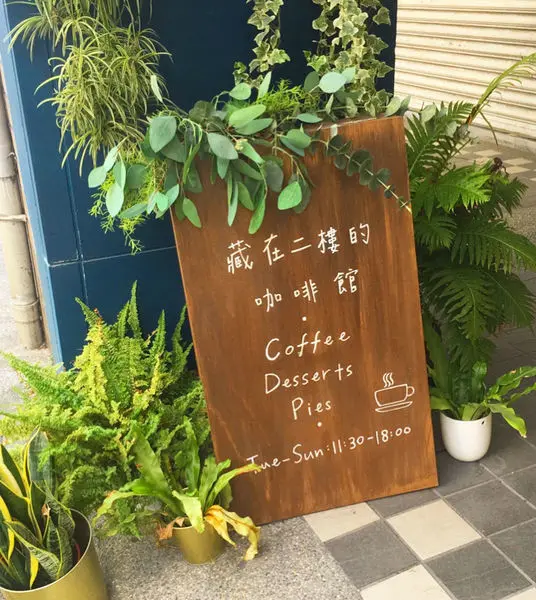 藏在二樓的
咖啡館
Coffee
Desserts
Pies
Tue-Sun:11:30-18:00